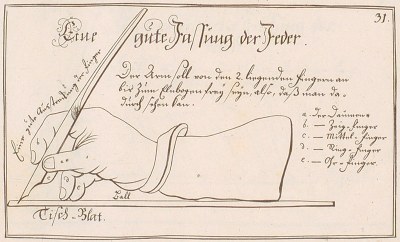 31.
Eine gute Fassung der Feder.
Eine gute Ausstreckung der Finger
Der Arm soll von den 2. liegenden Fingern an
bis zum Elebogen frey seyn, also, daß man da-
durch sehen kan.
a. der Daumen
b. — Zeig-finger
c. — Mittel-finger
d. — Ring-finger
e. — Or-finger
Ball
Tisch-Blat.